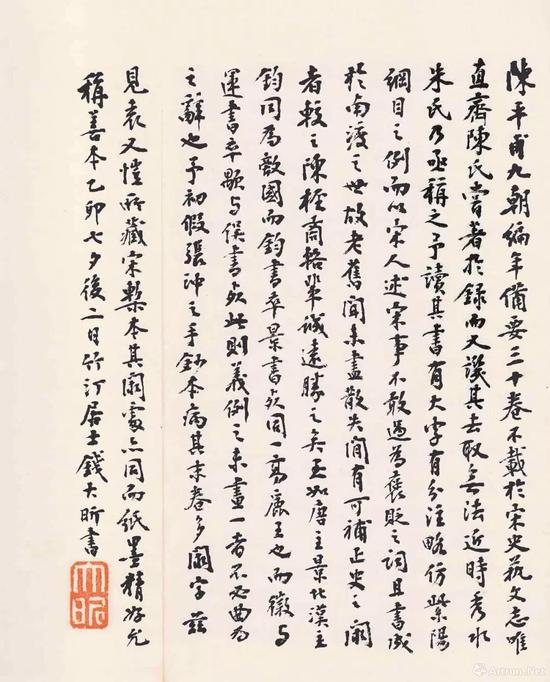 陳平甫九朝編年備要三十卷不載於宋史藝文志唯
直齋陳氏嘗著於錄而又譏其去取無法近時秀水
朱氏乃亟稱之予讀其書有大字有分注略仿紫陽
綱目之例而以宋人述宋事不敢過為褒貶之詞且書成
於南渡之世故老舊聞未盡散失間有可補正史之闕
者較之陳桱商輅輩誠遠勝之矣至如唐主景北漢主
鈞同為敵國而鈞書卒景書殂同一高麗王也而徽與
運書卒顒與俁書殂此則義例之未畫一者不必曲為
之辭也予初假張沖之手鈔本病其末卷多闕字茲
見袁又愷所藏宋槧本其闕處亦同而紙墨精好允
稱善本乙卯七夕後二日竹汀居士錢大昕書
大昕
Artron.Net